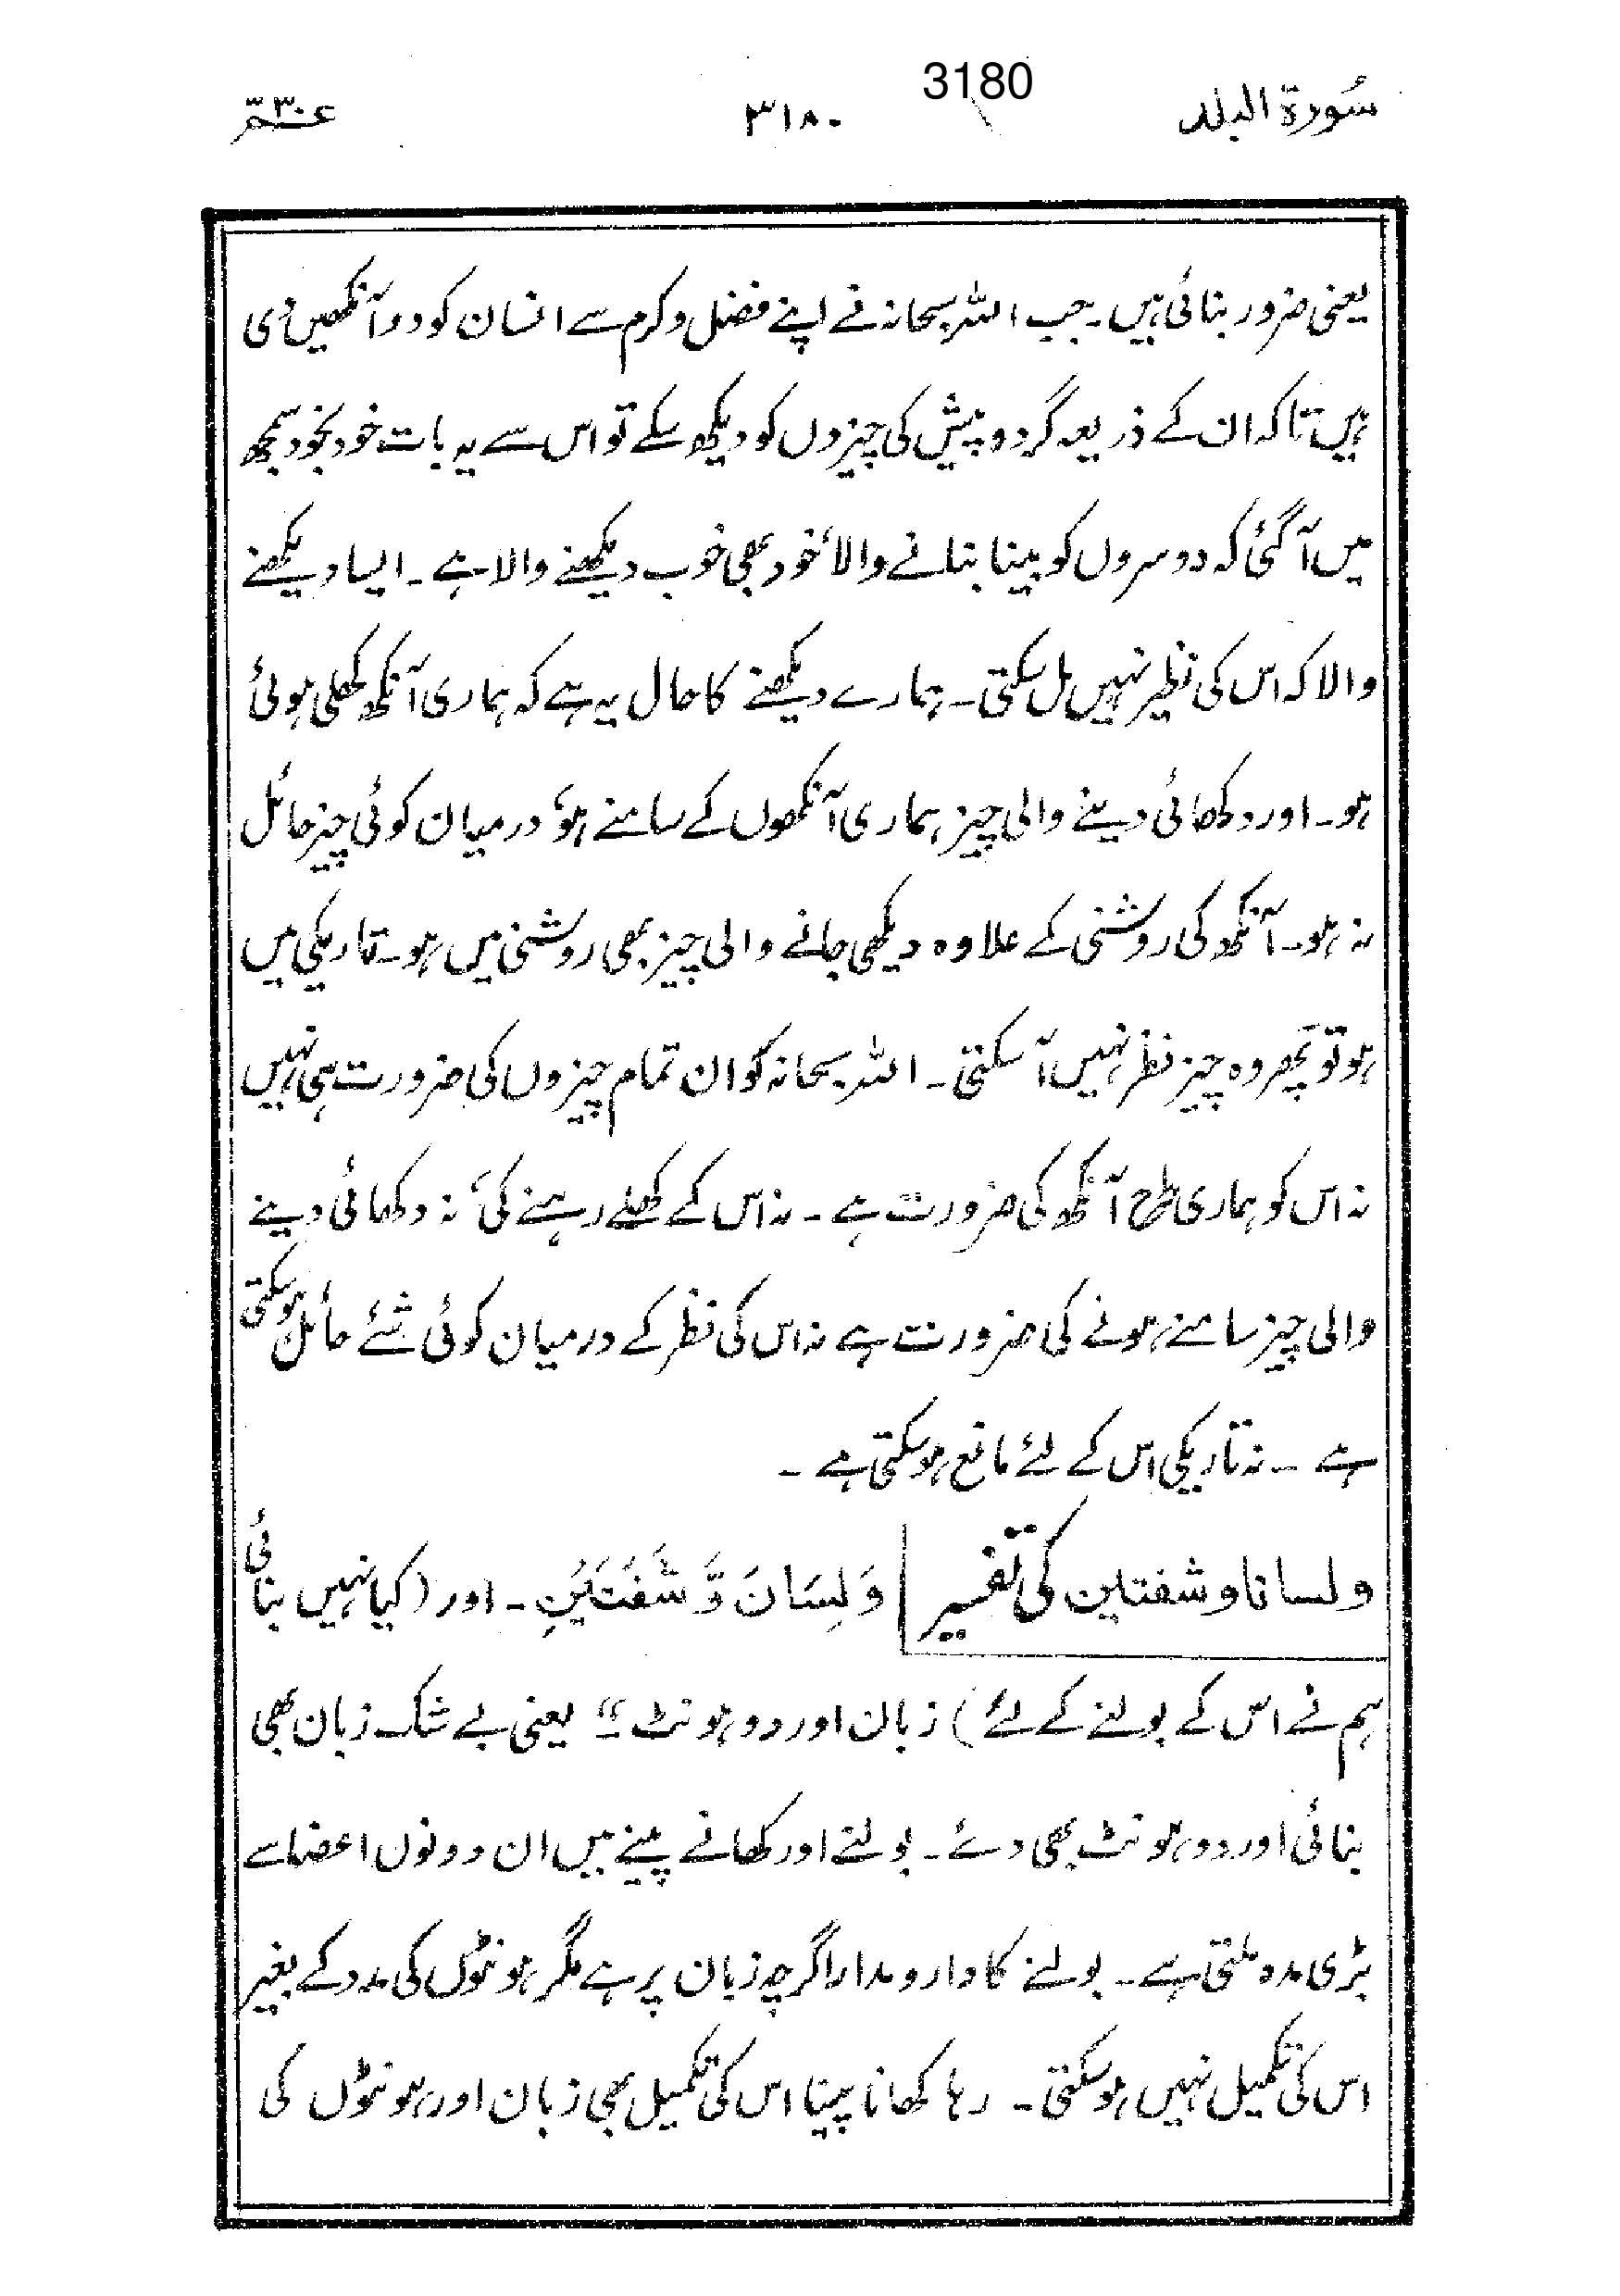 3180
سُورۃ البلد ۳۱۸۰ عــمّ ۳۰
یعنی ضرور بنائی ہیں۔ جب اللہ سبحانہ نے اپنے فضل و کرم سے انسان کو دو آنکھیں دی
ہیں تاکہ ان کے ذریعہ گرد و پیش کی چیزوں کو دیکھ سکے تو اس سے یہ بات خود بخود سمجھ
میں آ گئی کہ دوسروں کو بینا بنانے والا، خود بھی خوب دیکھنے والا ہے۔ ایسا دیکھنے
والا کہ اس کی نظیر نہیں مل سکتی۔ ہمارے دیکھنے کا حال یہ ہے کہ ہماری آنکھ کھلی ہوئی
ہو۔ اور دکھائی دینے والی چیز ہماری آنکھوں کے سامنے ہو، درمیان کوئی چیز حائل
نہ ہو۔ آنکھ کی روشنی کے علاوہ دیکھی جانے والی چیز بھی روشنی میں ہو۔ تاریکی میں
ہو تو پھر وہ چیز نظر نہیں آ سکتی۔ اللہ سبحانہ کو ان تمام چیزوں کی ضرورت ہی نہیں
نہ اس کو ہماری طرح آنکھ کی ضرورت ہے۔ نہ اس کے کھلے رہنے کی، نہ دکھائی دینے
والی چیز سامنے ہونے کی ضرورت ہے نہ اس کی نظر کے درمیان کوئی شئے حائل ہو سکتی
ہے ۔ نہ تاریکی اس کے لئے مانع ہو سکتی ہے ۔
ولسانا و شفتین کی تفسیر وَلِسَانَ وَّ شَفَتَیْنِ ۔ اور (کیا نہیں بنائی
ہم نے اس کے بولنے کے لئے) زبان اور دو ہونٹ“ یعنی بے شک زبان بھی
بنائی اور دو ہونٹ بھی دئے۔ بولنے اور کھانے پینے میں ان دونوں اعضا سے
بڑی مدد ملتی ہے۔ بولنے کا دارومدار اگرچہ زبان پر ہے مگر ہونٹوں کی مدد کے بغیر
اس کی تکمیل نہیں ہو سکتی۔ رہا کھانا پینا اس کی تکمیل بھی زبان اور ہونٹوں کی